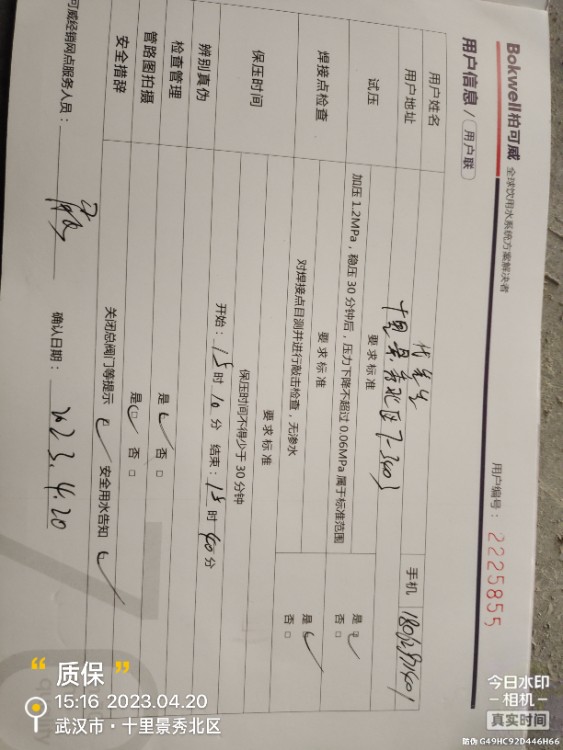 Bokwell柏可威 全球饮用水系统方案解决者
用户编号：2225855
用户信息/用户联
用户姓名
用户地址 十里景秀北区7-3403 手机
试压 要求标准
加压1.2MPa，稳压30分钟后，压力下降不超过0.06MPa属于标准范围 是□ 否□
焊接点检查 要求标准
对焊接点目测并进行敲击检查，无渗水 是□ 否□
保压时间 要求标准
保压时间不得少于30分钟
开始：15时10分 结束：15时40分
辨别真伪 是□ 否□
检查管理
管路图拍摄 是□ 否□
安全措辞 关闭总阀门等提示□ 安全用水告知□
可威经销网点服务人员： 确认日期：2023.4.20
“ 质保 ”
15:16 2023.04.20
武汉市·十里景秀北区
今日水印
-相机-
真实时间
防伪 G49HC92D446H66